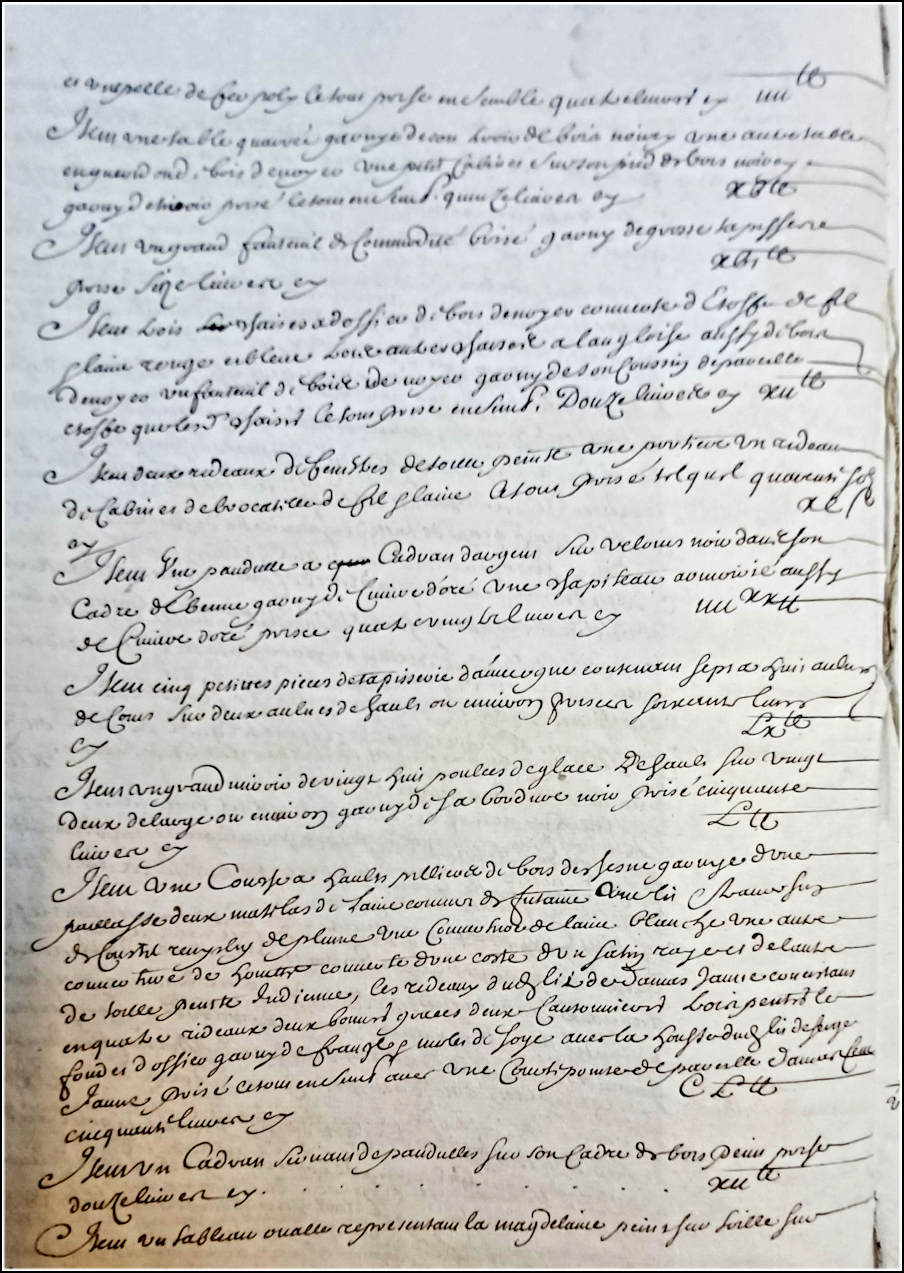 et une pelle de fer poly le tout prisé ensemble quatre livres cy iiii lt
Item une table quarrée garnye de son de bois noircy une autre table
en gueridon de bois de noyer une petit Cabinet sur son pied de bois noircy
garny de miroir prisé le tout ensemb. quinze livres cy xv lt
Item un grand fauteuil de Commodité brisé garny de grosse tapisserie
prisé seize livres cy xvi lt
Item trois chaises a dossier de bois de noyer couverte d'Etoffe de fil
& laine rouge et bleue trois autres chaises a l'angloise aussy de bois
de noyer un fauteuil de bois de noyer garny de son Coussin de pareille
etoffe que lesd. chaises le tout prisé ensemb. Douze livres cy xii lt
Item deux rideaux de fenêtres de toille peinte une portiere un rideau
de Cabinet de brocatille de fil & laine le tout prisé tel quel quarente sols
cy xl s
Item Une pandulle a Cadran d'argent sur velours noir dans son
Cadre d'Ebenne garny de Cuivre doré une chapiteau armoirié aussy
de Cuivre doré prisée quatre vingt livres cy iiii xx lt
Item cinq petittes pieces de tapisserie d'auvergne contenant sept a huit aulnes
de Cours sur deux aulnes de hault ou environ prisées soixante livres
cy Lx lt
Item un grand miroir de vingt huit poulces de glace de hault sur vingt
deux de large ou environ garny de sa bordure noir prisé cinquante
livres cy L lt
Item une Couche a haults pilliers de bois de chesne garnye d'une
paillasse deux matelas de laine couvert de futaine un lit & traversin
de Coustil remplis de plume une Couverture de laine blanche une autre
couverture de houatte couverte d'une costé d'un satin rayé et de l'autre
de toille peinte Indienne, les rideaux dud. lit de Damas Jaune consistans
en quatre rideaux deux bonnes graces deux Cantonnieres trois pentes le
fond et dossier garny de franges & molet de soye avec la housse dud. lit de serge
Jaune prisé le tout ensemb. avec une Courtepointe de pareille damas Cent
cinquante livres cy C L lt
Item un Cadran servant de pandulles sur son Cadre de bois peint prisé
douze livres cy . . . . . . xii lt
Item un tableau ovalle representant la magdelaine peint sur toille sur